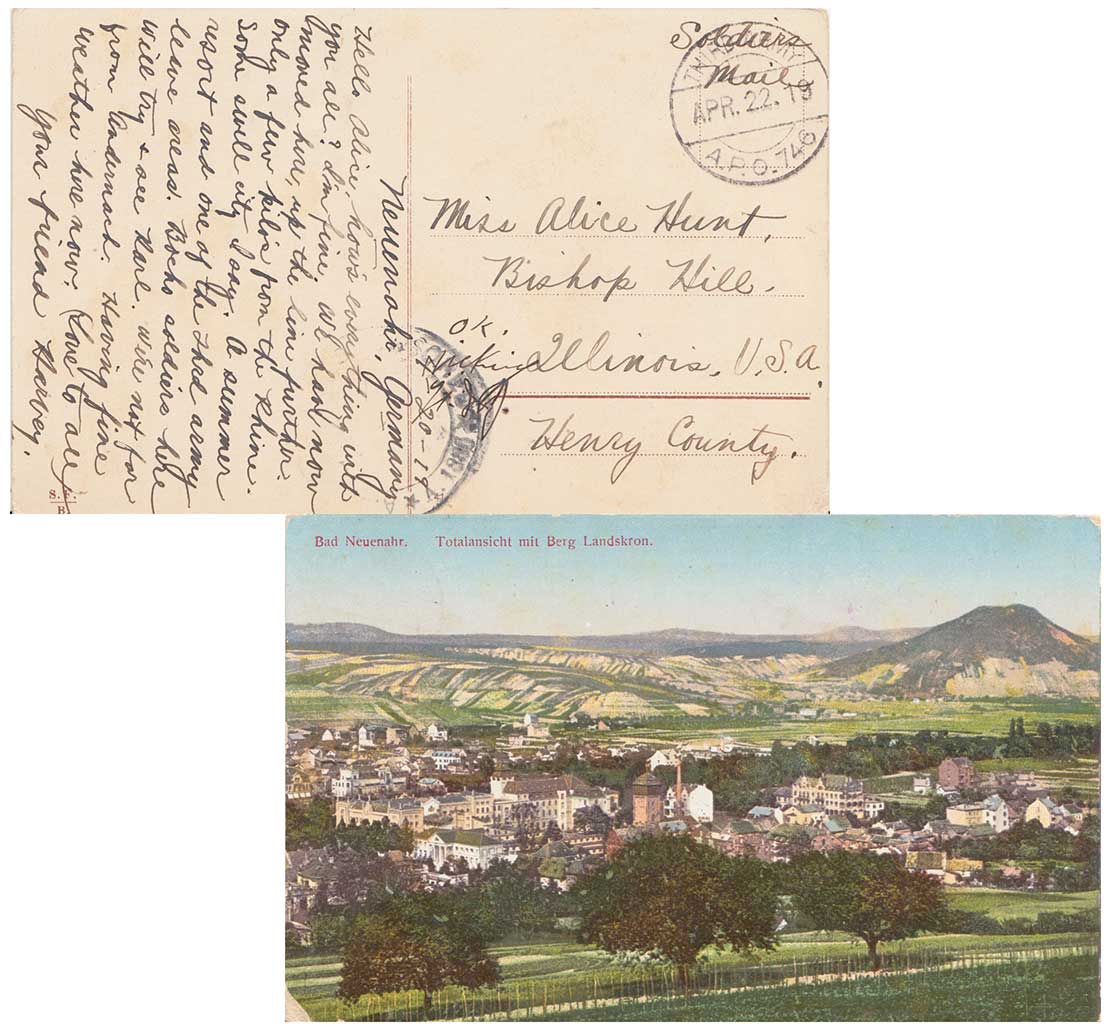 Soldiers
Mail
APR. 22. 19
A.P.O. 746
Miss Alice Hunt,
Bishop Hill.
Illinois, U.S.A.
Henry County.
OK.
Neuenahr, Germany
20-19
Hello Alice, hows everything with
you all? I'm fine, we have now
moved here, up the line further.
only a few kilos from the Rhine.
Some swell city I say. A summer
resort and one of the third army
leave areas. Bocho soldiers here
will try & see Karl. we're not far
from Andernach. Having fine
weather here now. (Love to all
Your friend Harvey.
S. F.
B.
Bad Neuenahr. Totalansicht mit Berg Landskron.